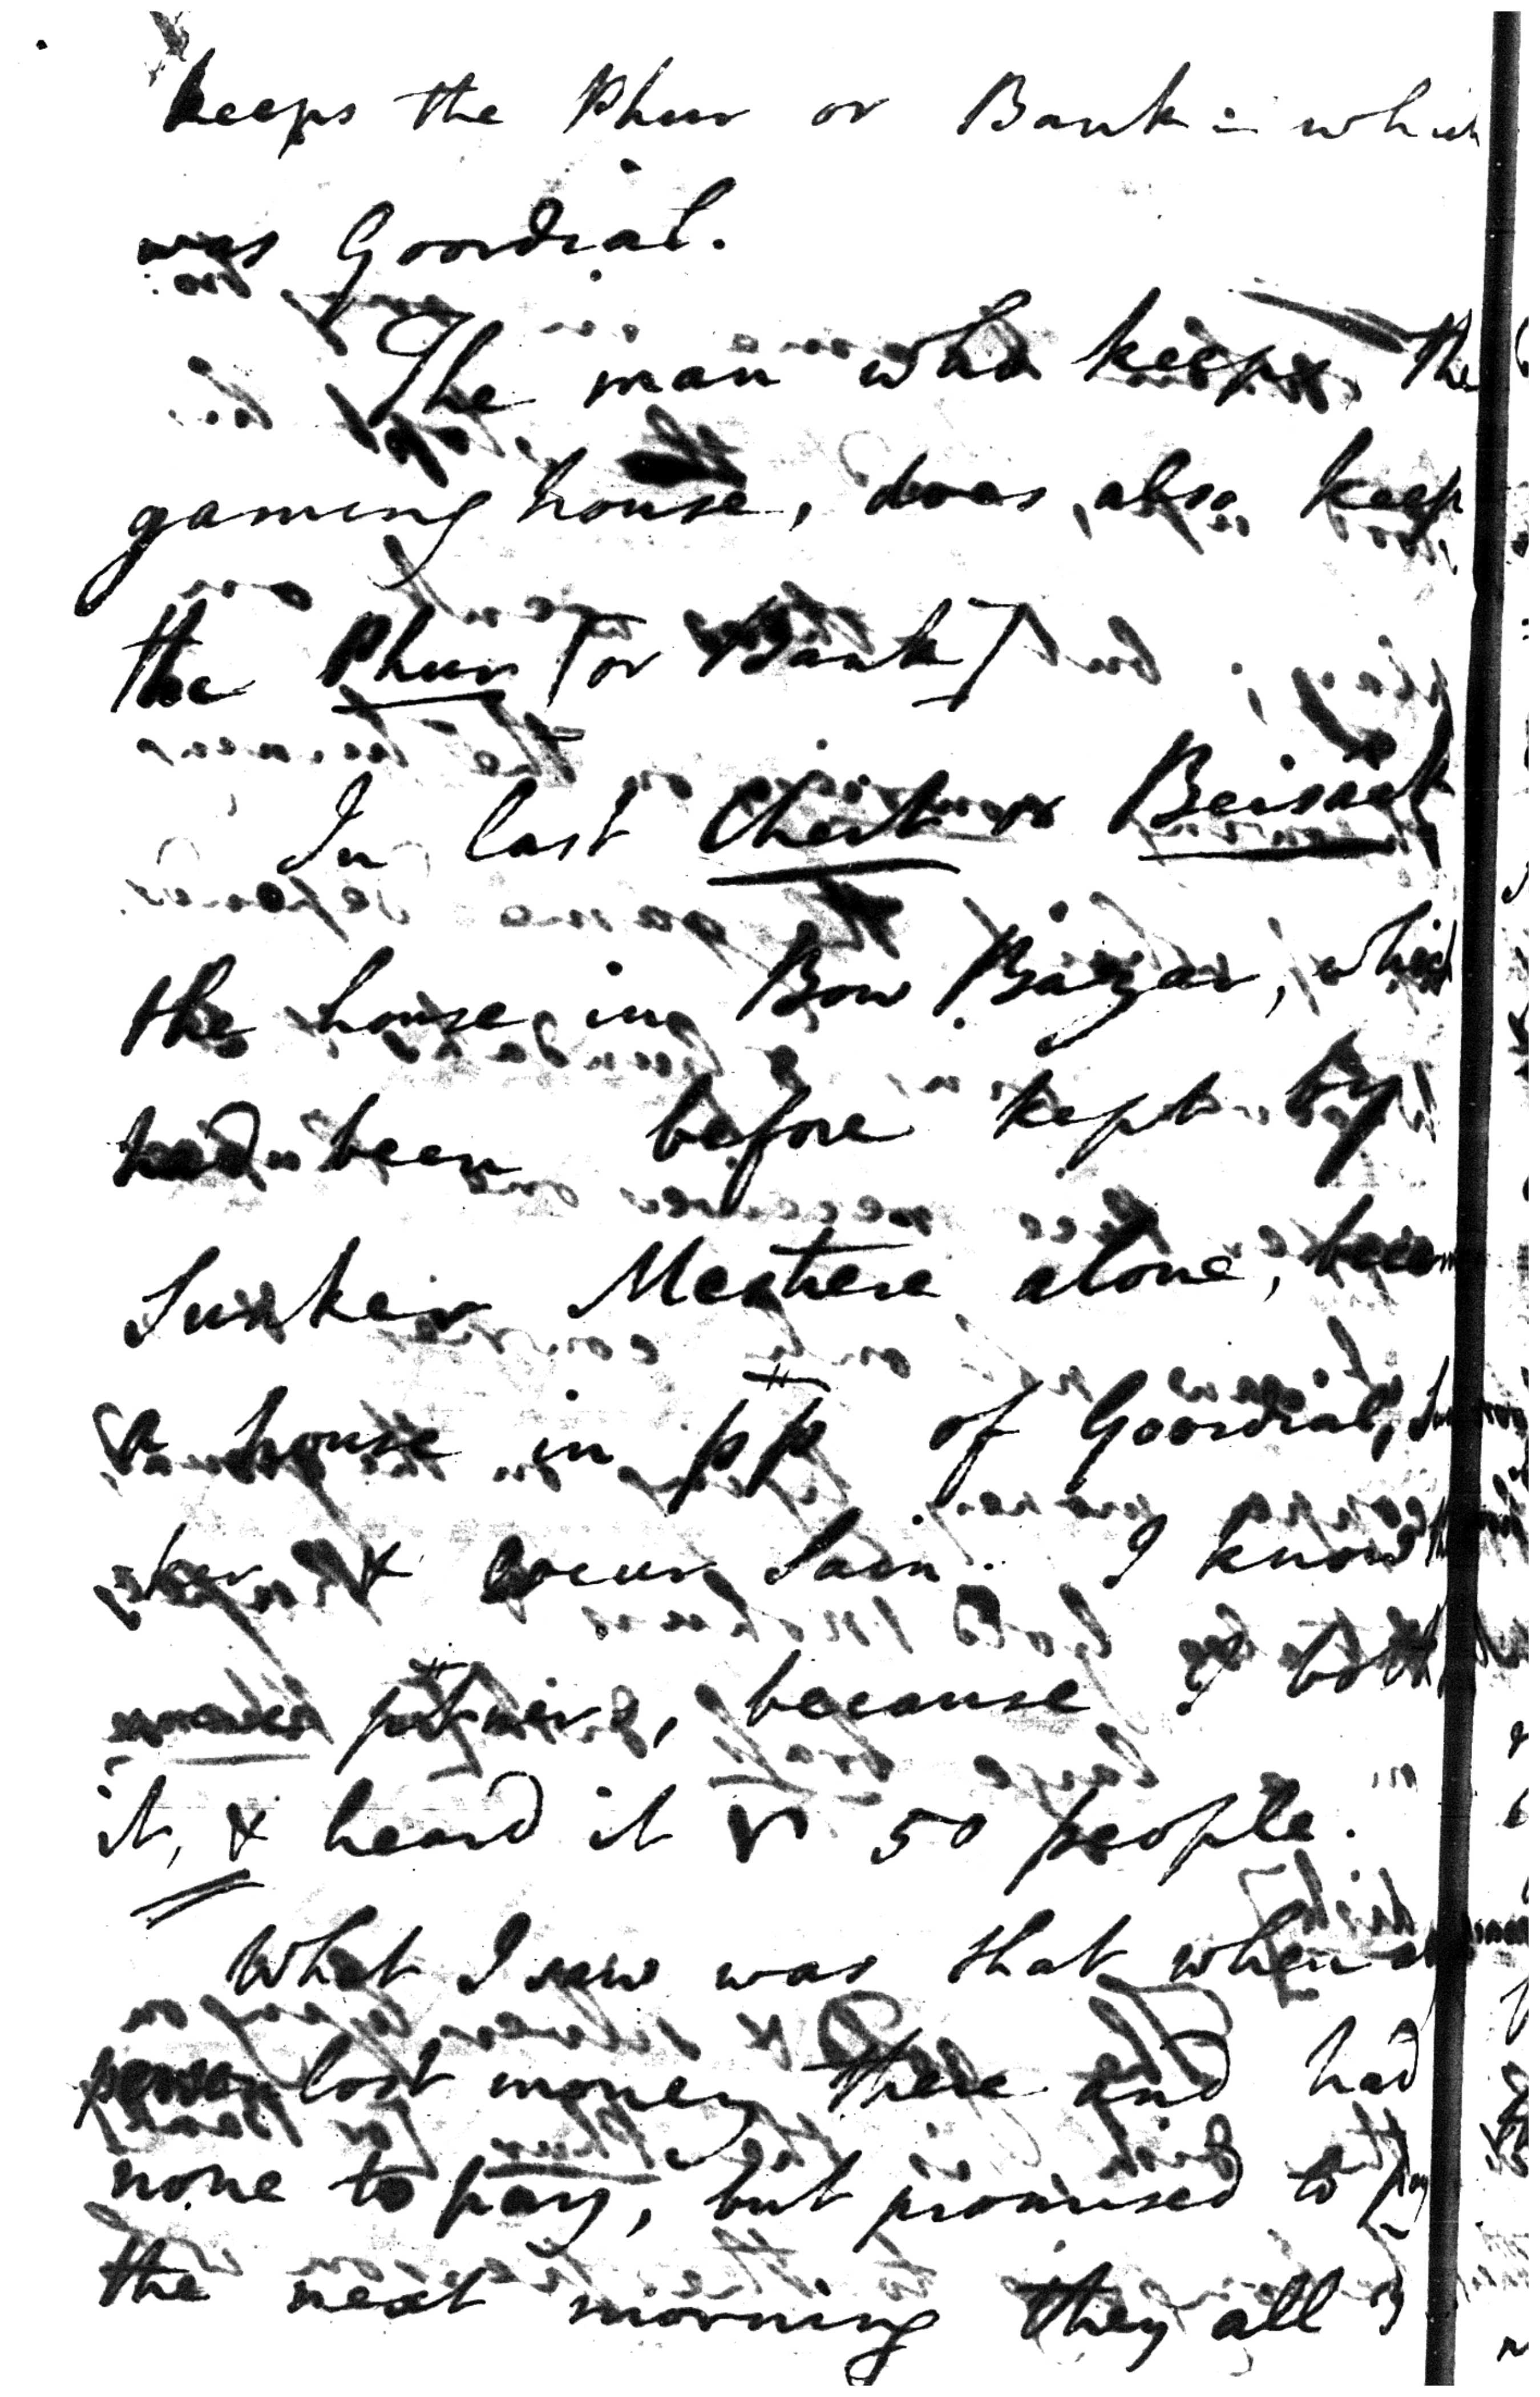 keeps the Phur or Bank :- which
was Goordial.
The man who keeps the
gaming house, does also keep
the Phur [or Bank]
In last Cheit or Beisack
the house in Bow Bazar, which
had been before kept by
Sunker alone, became
a house in pp of Goordial, Sun
ker & Gocur Sain. I know
ptners, because I both
it, & heard it 50 people.
What I saw was that when a
person lost money there and had
none to pay, but promised to pay
the next morning they all